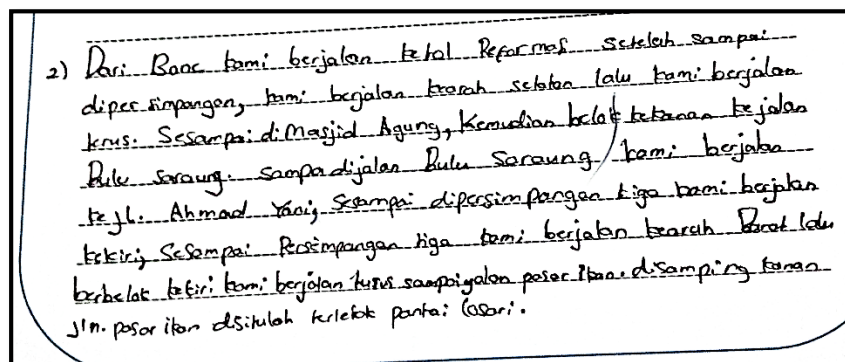 2) Dari Baoc kami berjalan ketol Reformasi setelah sampai
dipersimpangan, kami berjalan kearah selatan lalu kami berjalan
krus. Sesampai di Masjid Agung, Kemudian belok kekanan kejalan
Bulu Saraung. Sampa dijalan Bulu Saraung, kami berjalan
ke Jl. Ahmad Yani, Sesampai dipersimpangan tiga kami berjalan
kekiri, Sesampai Persimpangan tiga kami berjalan kearah Barat lalu
berbelok kekiri kami berjalan lurus sampai jalan pasar Ikan. disamping kanan
Jln. pasar ikan disitulah terletak pantai Losari.